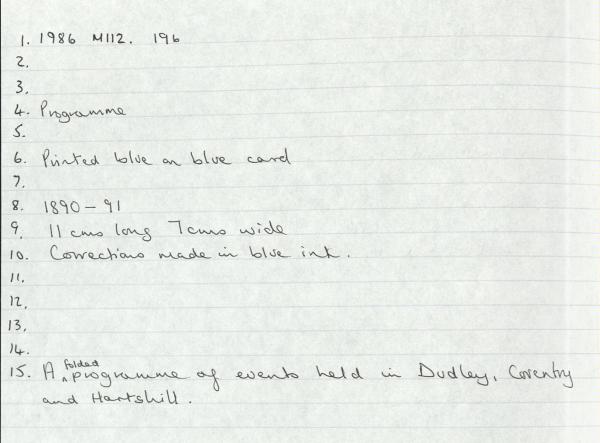 1. 1986 M112. 196
2.
3.
4. Programme
5.
6. Printed blue on blue card
7.
8. 1890 - 91
9. 11 cms long 7 cms wide
10. Corrections made in blue ink.
11.
12.
13.
14.
15. A folded programme of events held in Dudley, Coventry
and Hartshill.